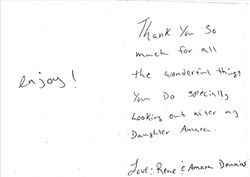 enjoy!
Thank You So
much for all
the wonderful things
You Do specially
Looking out after my
Daughter Amara.
Love: Rene & Amara Dennis